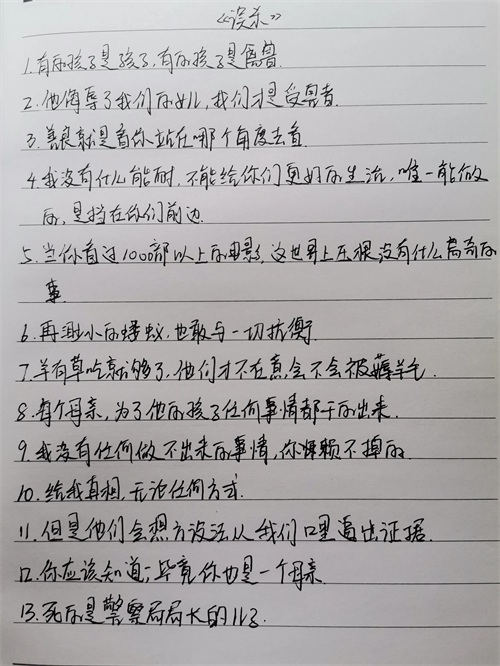 《误杀》
1.有的孩子是孩子,有的孩子是禽兽.
2.他侮辱了我们的女儿,我们才是受害者.
3.善良就是看你站在哪个角度去看.
4.我没有什么能耐.不能给你们更好的生活,唯一能做
的,是挡在你们前边.
5.当你看过1000部以上的电影,这世界上压根没有什么离奇的
事.
6.再渺小的蝼蚁,也敢与一切抗衡.
7.羊有草吃就够了,他们才不在意会不会被薅羊毛.
8.每个母亲,为了他的孩子任何事情都干的出来.
9.我没有任何做不出来的事情,你休赖不掉的.
10.给我真相,无论任何方式.
11.但是他们会想方设法从我们口里逼出证据.
12.你应该知道;毕竟你也是一个母亲.
13.死的是警察局局长的儿子.